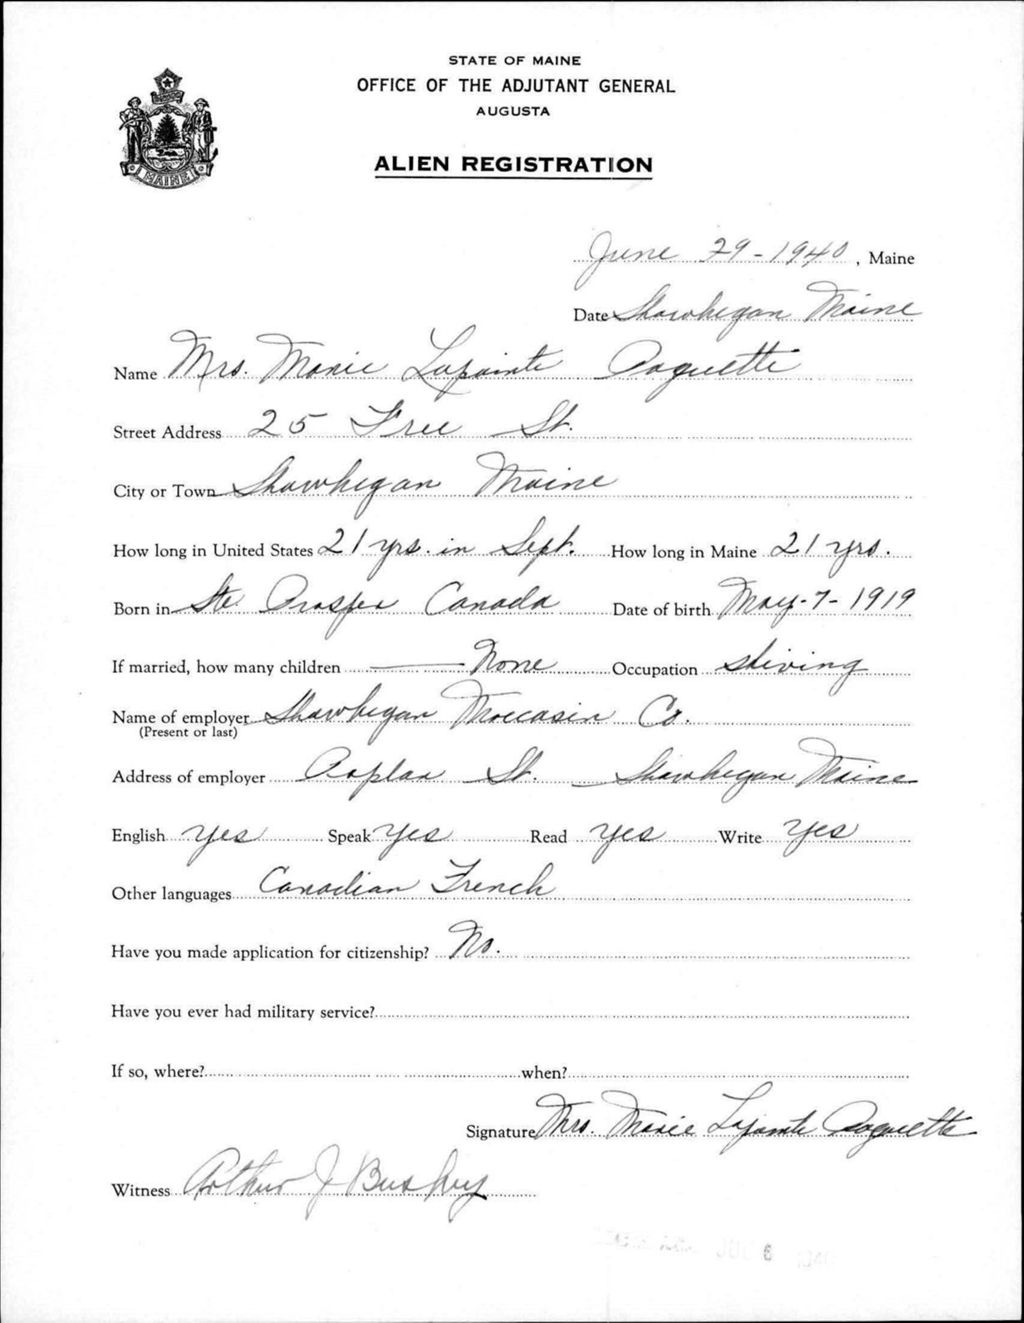 STATE OF MAINE
OFFICE OF THE ADJUTANT GENERAL
AUGUSTA
ALIEN REGISTRATION
MAINE
June 29-1940, Maine
Date Skowhegan Maine
Name Mrs. Marie Lapointe Paquette
Street Address 25 Free St.
City or Town Skowhegan Maine
How long in United States 21 yrs. in Sept. How long in Maine 21 yrs.
Born in Ste. Prosper Canada Date of birth May-7-1919
If married, how many children None Occupation skiving
Name of employer Skowhegan Moccasin Co.
(Present or last)
Address of employer Poplar St. Skowhegan Maine
English Yes Speak Yes Read Yes Write Yes
Other languages Canadian French
Have you made application for citizenship? No.
Have you ever had military service?
If so, where? when?
Signature Mrs. Marie Lapointe Paquette
Witness Arthur J Bushey